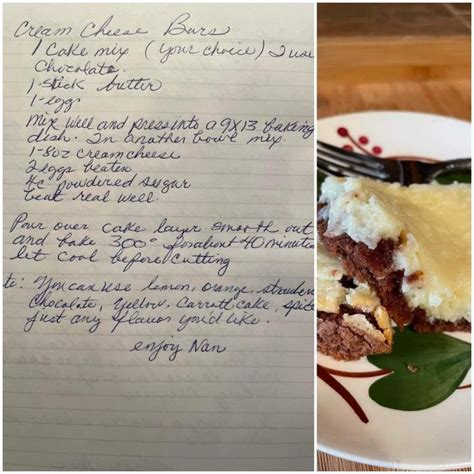 Cream Cheese Bars
1 Cake mix (your choice) I use
Chocolate.
1-stick butter
1-egg
mix well and press into a 9X13 baking
dish. In another bowl mix.
1-8oz cream cheese
2 eggs beaten
4c powdered sugar
beat real well.
Pour over cake layer smooth out
and bake 300° for about 40 minutes
let cool before cutting
te: You can use lemon, orange, strawber
chocolate, yellow. Carrott cake, spice
just any flavor you'd like.
enjoy Nan